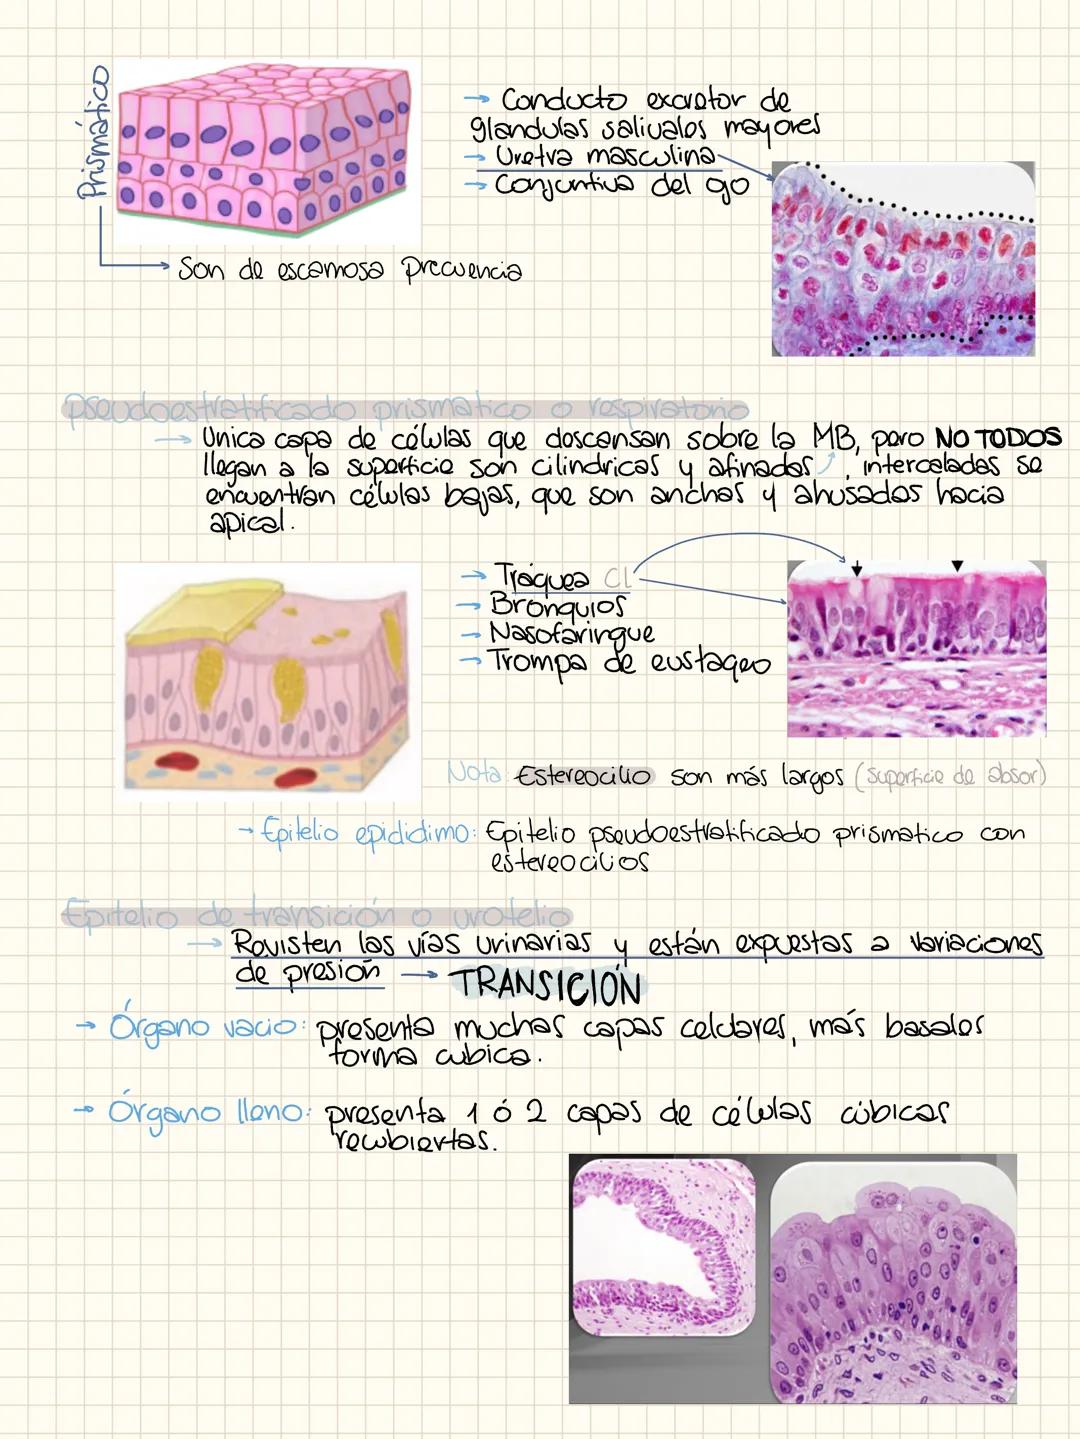 Prismático
→ Conducto excretor de
glandulas salivales mayores
→ Uretra masculina
→ Conjuntiva del ojo
Son de escamosa precuencia
pseudoestratificado prismatico o respiratorio
→ Unica capa de células que descansan sobre la MB, pero NO TODOS
llegan a la superficie son cilindricas y afinadas, intercaladas se
encuentran células bajas, que son anchas y ahusadas hacia
apical.
→ Tráquea Cl
→ Bronquios
→ Nasofaringue
→ Trompa de eustaqeo
Nota: Estereocilio son más largos (superficie de absor)
→ Epitelio epididimo: Epitelio pseudoestratificado prismatico con
estereocilios
Epitelio de transición o urotelio
→ Revisten las vías urinarias y están expuestas a variaciones
de presión → TRANSICIÓN
→ Órgano vacio: presenta muchas capas celulares, más basales
forma cubica.
→ Órgano lleno: presenta 1 ó 2 capas de células cúbicas
recubiertas.